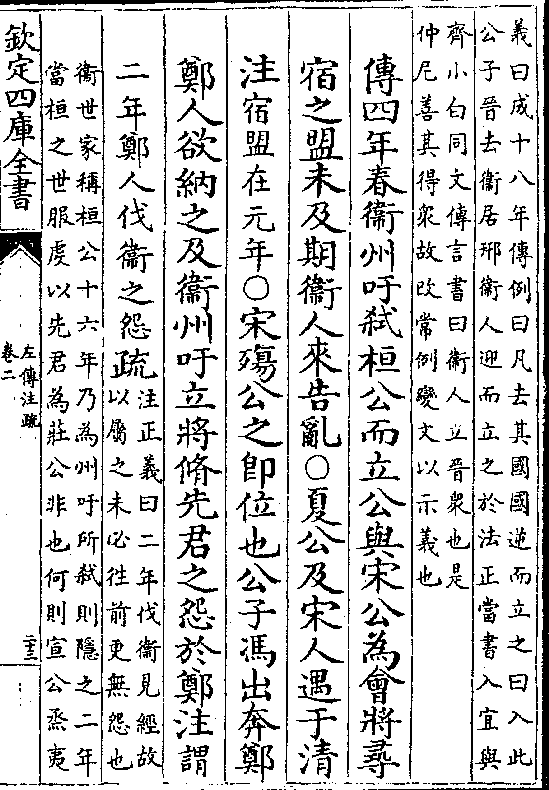 義曰成十八年傳例曰凡去其國國逆而立之曰入此
公子晉去衞居邢衞人迎而立之於法正當書入宜與
齊小白同文傳言書曰衞人立晉衆也是
仲尼善其得衆故改常例變文以示義也
傳四年春衞州吁弑桓公而立公與宋公為會將尋
宿之盟未及期衞人來告亂○夏公及宋人遇于清
注宿盟在元年○宋殤公之即位也公子馮出奔鄭
鄭人欲納之及衞州吁立將脩先君之怨於鄭注謂
二年鄭人伐衞之怨疏
注正義曰二年伐衞見經故
以屬之未必徃前更無怨也
衞世家稱桓公十六年乃為州吁所弑則隱之二年
當桓之世服䖍以先君為莊公非也何則宣公烝夷
欽定四庫全書
左傳注疏
卷二
二十三